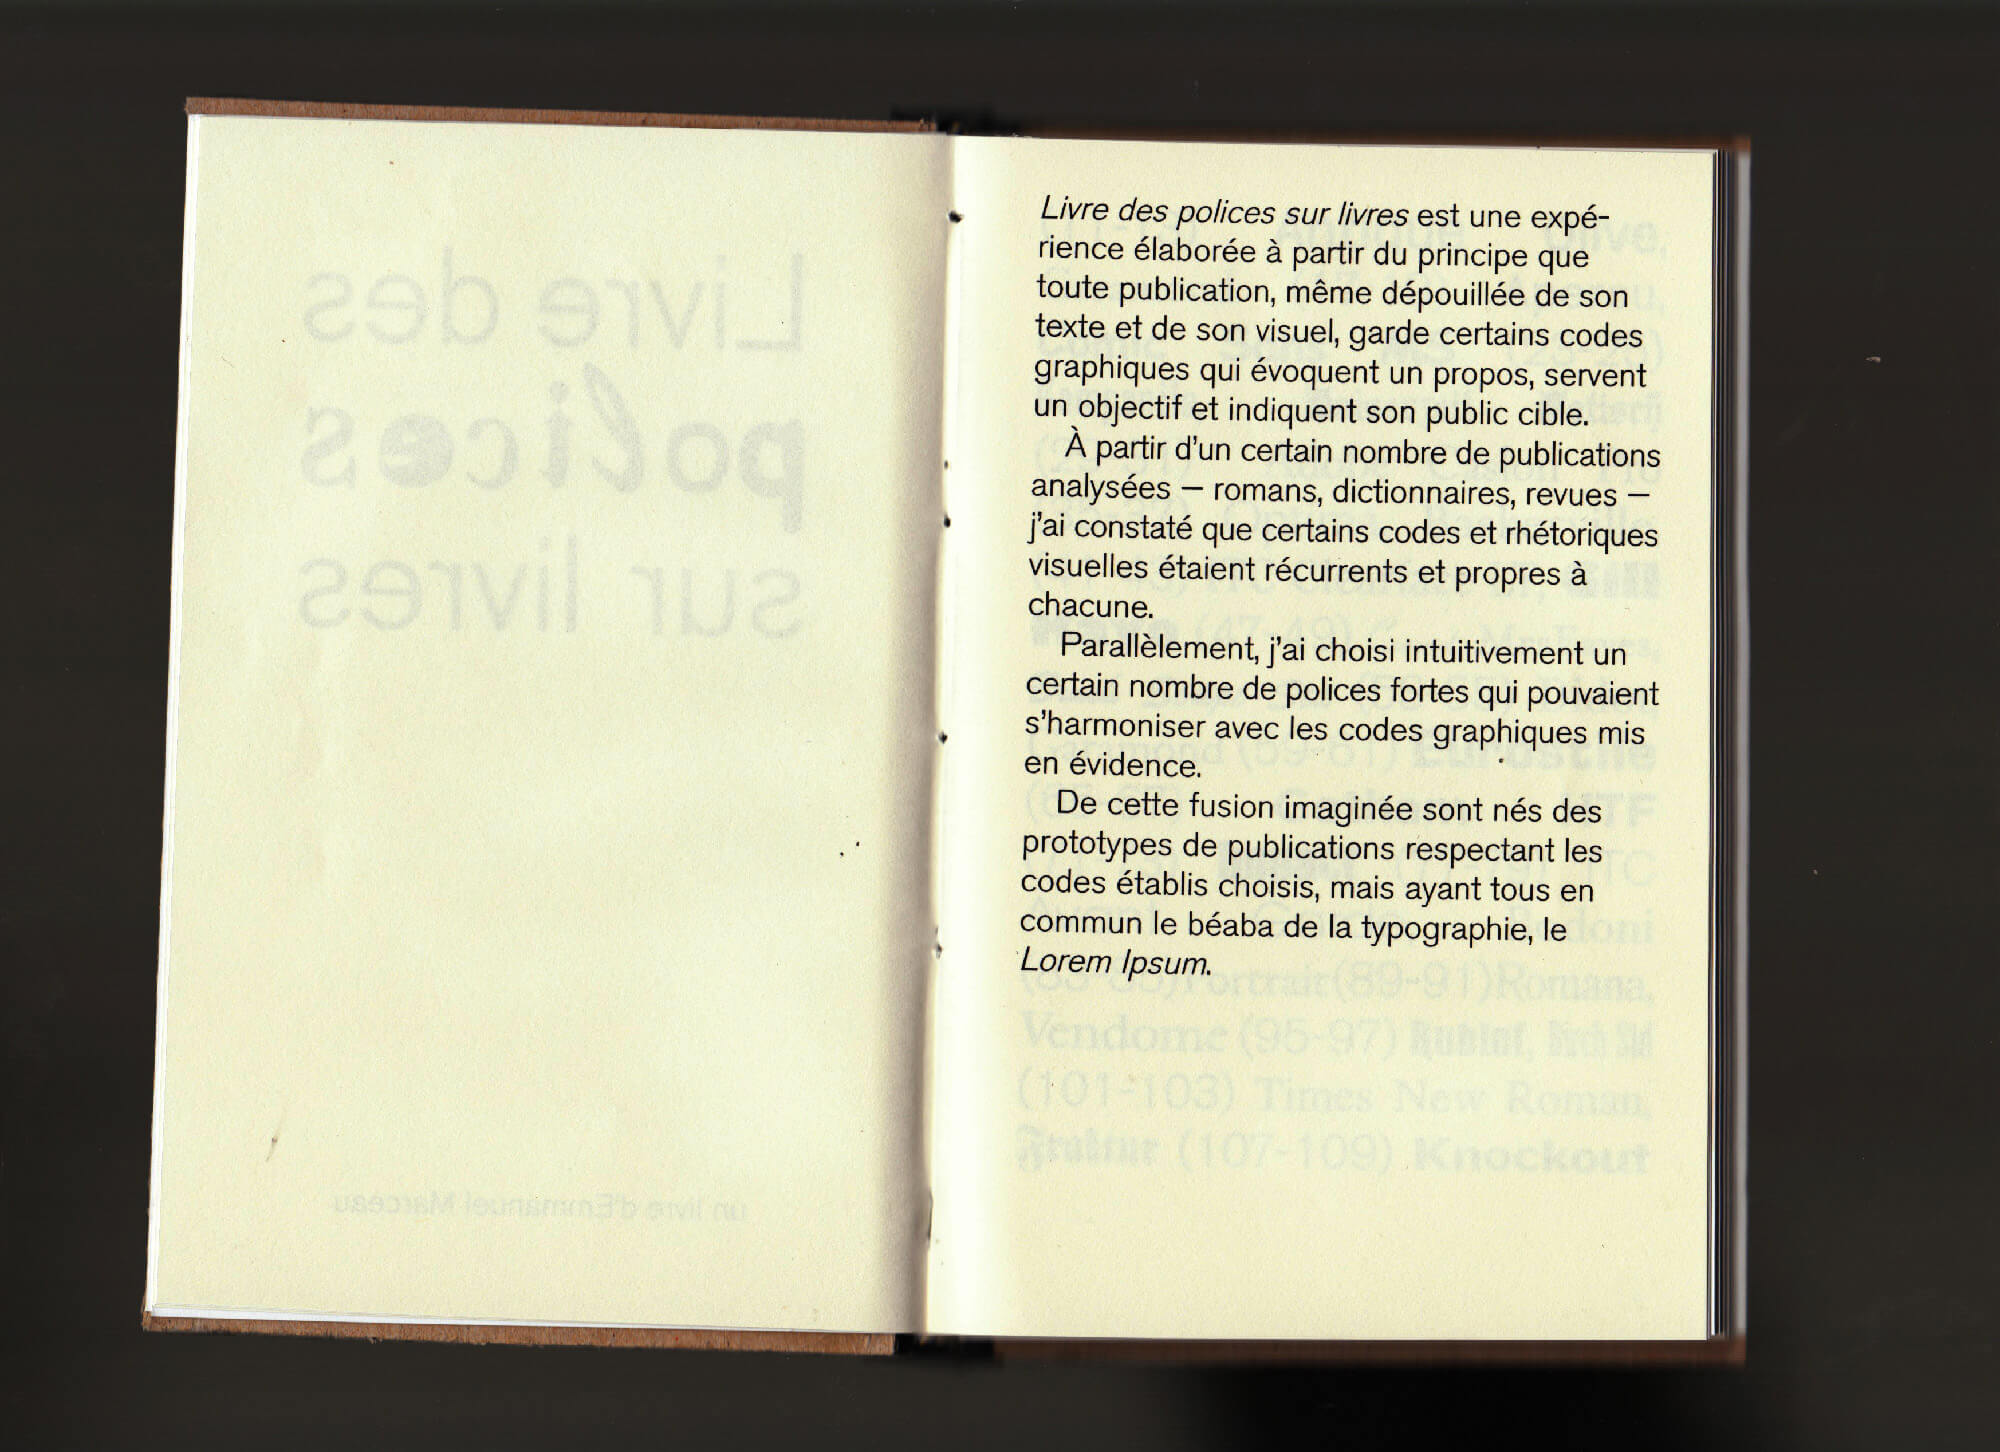 Livre des
polices
sur livres
un livre d'Emmanuel Marceau
Livre des polices sur livres est une expé-
rience élaborée à partir du principe que
toute publication, même dépouillée de son
texte et de son visuel, garde certains codes
graphiques qui évoquent un propos, servent
un objectif et indiquent son public cible.
À partir d'un certain nombre de publications
analysées — romans, dictionnaires, revues —
j'ai constaté que certains codes et rhétoriques
visuelles étaient récurrents et propres à
chacune.
Parallèlement, j'ai choisi intuitivement un
certain nombre de polices fortes qui pouvaient
s'harmoniser avec les codes graphiques mis
en évidence.
De cette fusion imaginée sont nés des
prototypes de publications respectant les
codes établis choisis, mais ayant tous en
commun le béaba de la typographie, le
Lorem Ipsum.
Portrait (89-91) Romana,
Vendome (95-97)
(101-103) Times New Roman,
Fraktur (107-109) Knockout